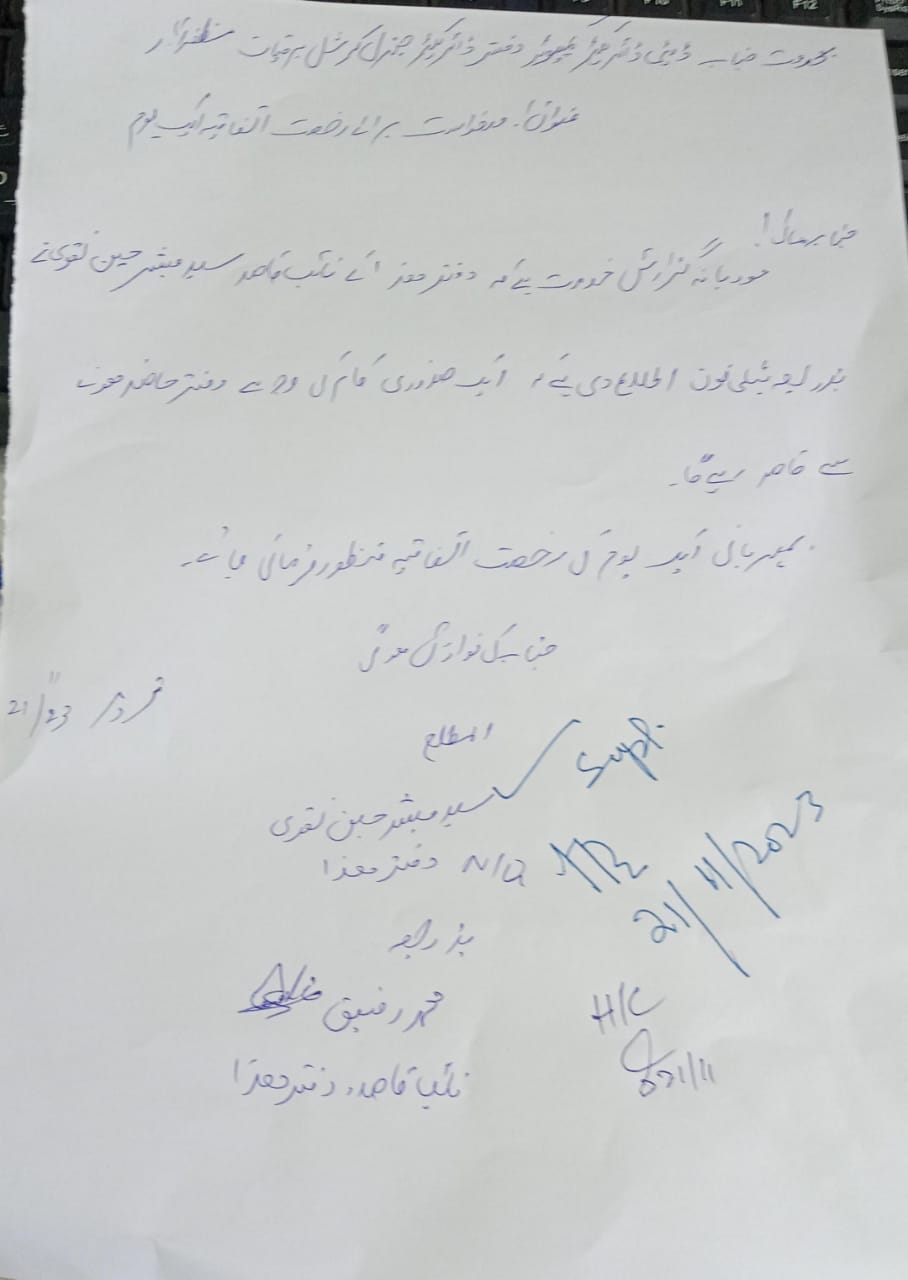 بخدمت جناب ڈپٹی ڈائریکٹر کمپیوٹر دفتر ڈائریکٹر جنرل کمرشل برقیات مظفرآباد
عنوان: درخواست برائے رخصت اتفاقیہ ایک یوم
جناب عالی!
مودبانہ گزارش خدمت ہے کہ دفتر ھذا کے نائب قاصد سید مبشر حسین نقوی نے
بذریعہ ٹیلی فون اطلاع دی ہے کہ ایک ضروری کام کی وجہ سے دفتر حاضر ہونے
سے قاصر رہے گا۔
بمہربانی ایک یوم کی رخصت اتفاقیہ منظور فرمائی جائے۔
جناب کی نوازش ہو گی
21/11/23
المطلع
Supt.
سید مبشر حسین نقوی
N/Q دفتر ھذا
21/11/2023
بذریعہ
محمد رفیق
H/C
نائب قاصد دفتر ھذا
21/11